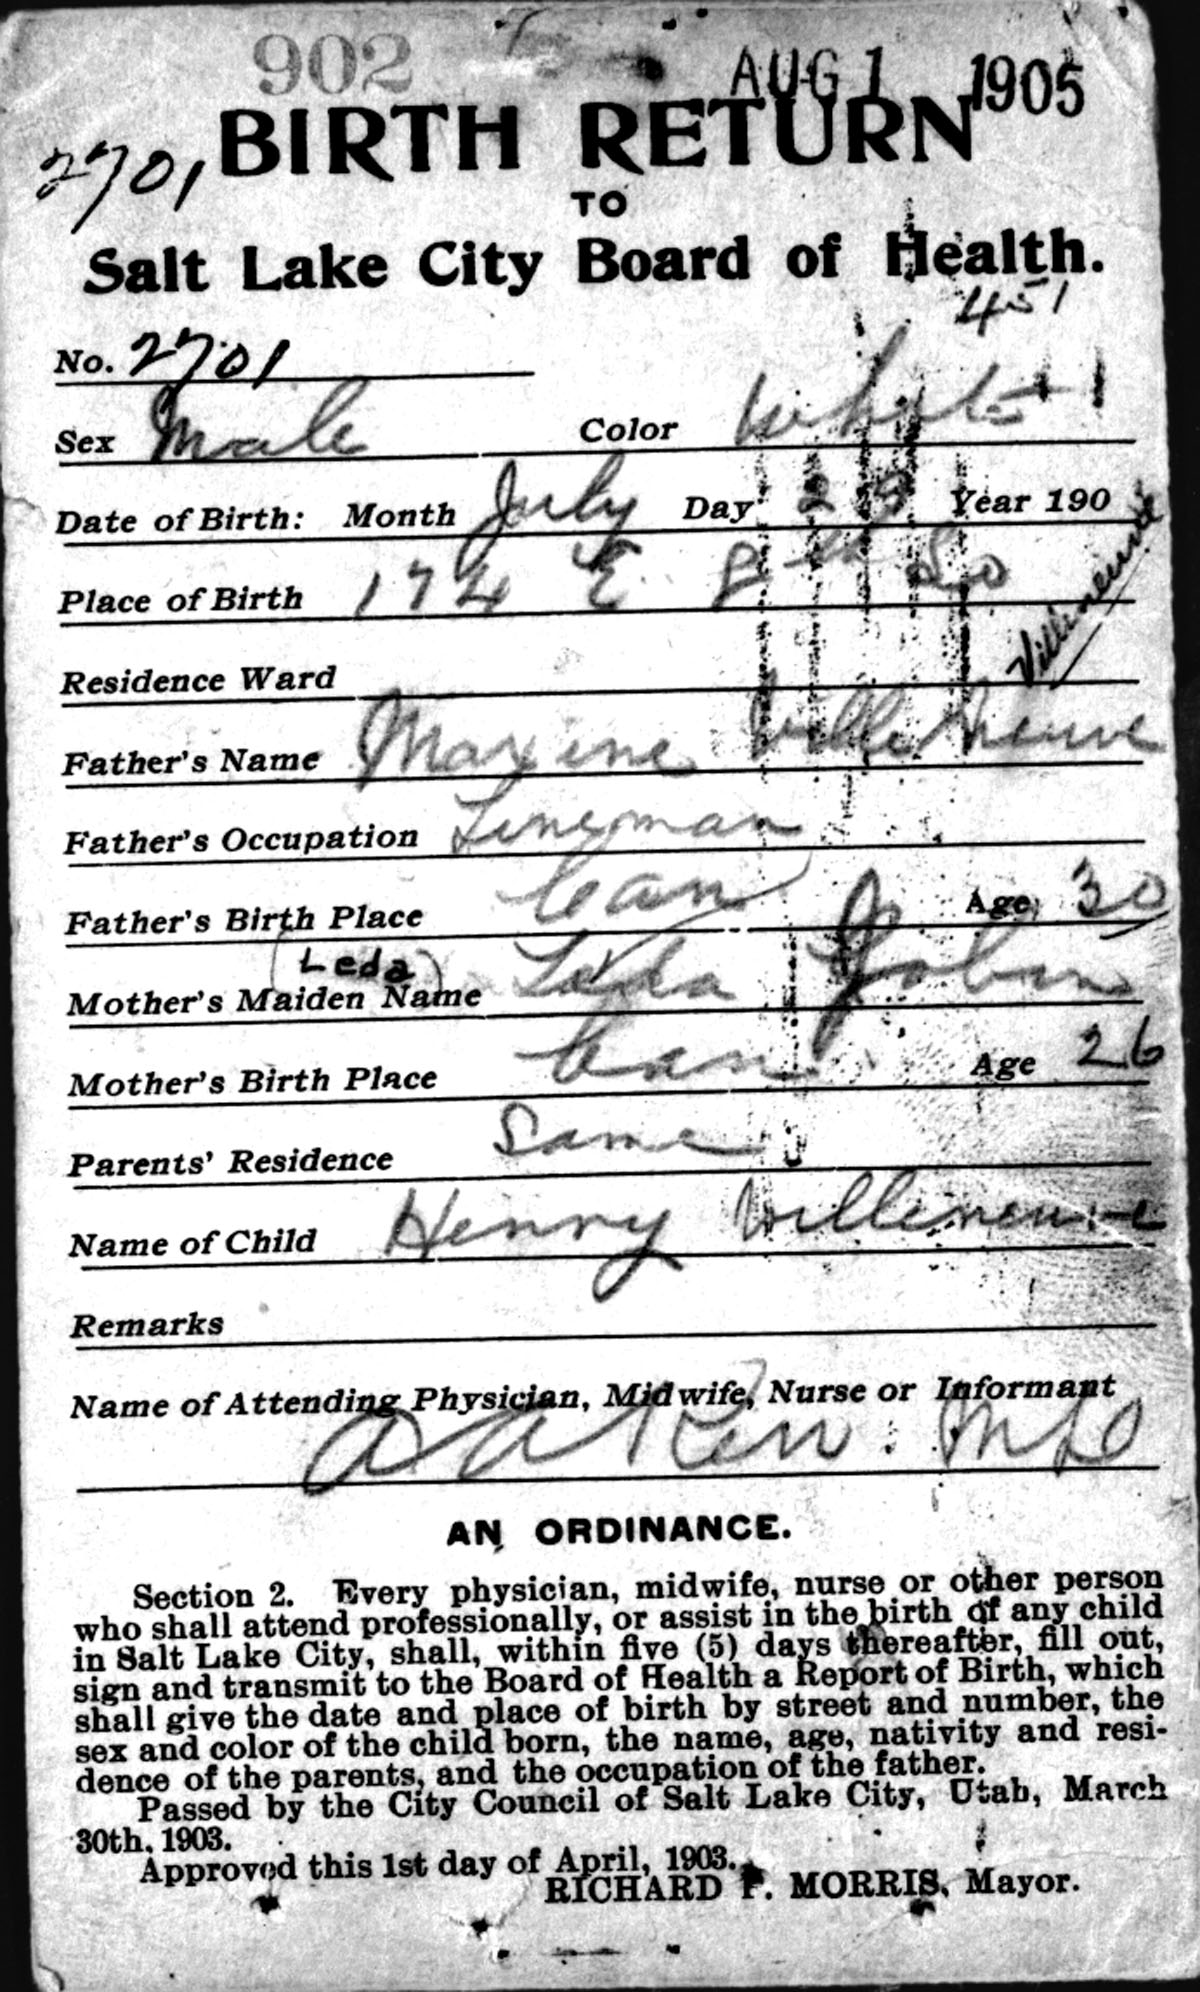 902 AUG 1 1905
2701 BIRTH RETURN
TO
Salt Lake City Board of Health.
451
No. 2701
Sex Male Color White
Date of Birth: Month July Day 23 Year 190
Place of Birth 174 E 8th So
Villeneuve
Residence Ward
Father's Name Maxine Villeneuve
Father's Occupation Lineman
Father's Birth Place Can Age 30
(Leda)
Mother's Maiden Name Leda Jobin
Mother's Birth Place Can Age 26
Parents' Residence Same
Name of Child Henry Villeneuve
Remarks
Name of Attending Physician, Midwife, Nurse or Informant
MD
AN ORDINANCE.
Section 2. Every physician, midwife, nurse or other person
who shall attend professionally, or assist in the birth of any child
in Salt Lake City, shall, within five (5) days thereafter, fill out,
sign and transmit to the Board of Health a Report of Birth, which
shall give the date and place of birth by street and number, the
sex and color of the child born, the name, age, nativity and resi-
dence of the parents, and the occupation of the father.
Passed by the City Council of Salt Lake City, Utah, March
30th, 1903.
Approved this 1st day of April, 1903.
RICHARD P. MORRIS, Mayor.